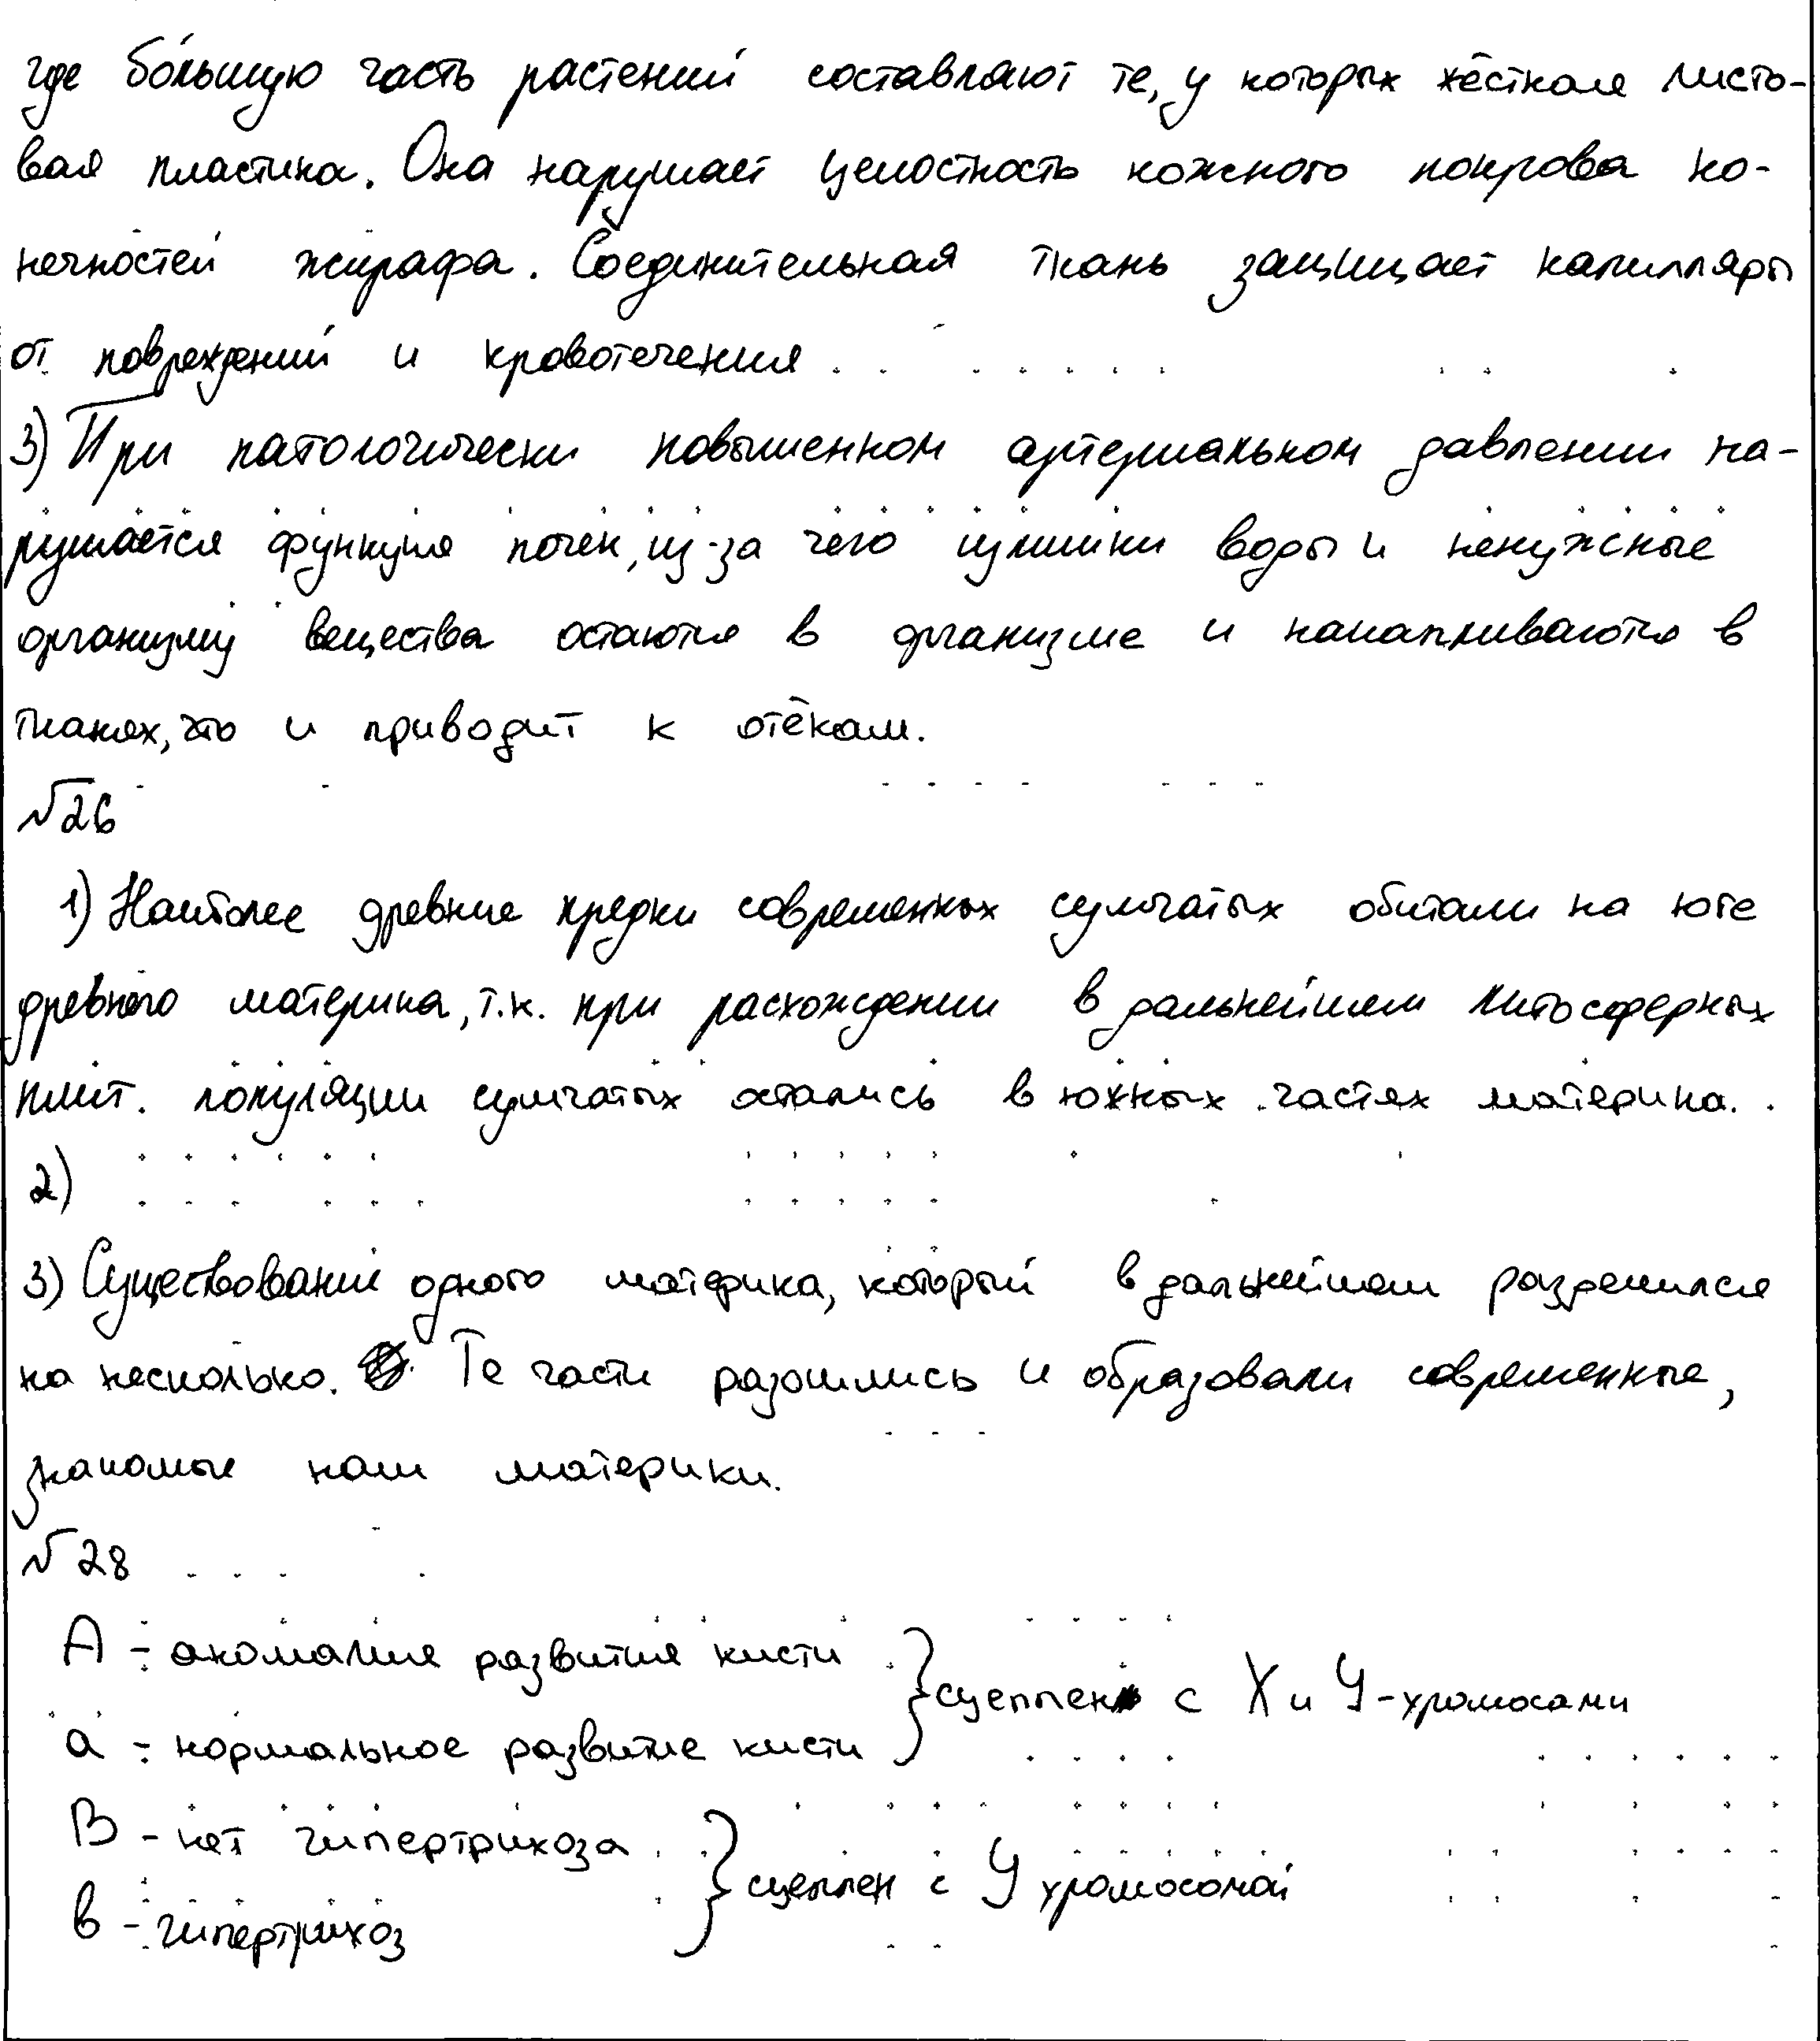 где бо́льшую часть растений составляют те, у которых жёсткая листо-
вая пластина. Она нарушает целостность кожного покрова ко-
нечностей жирафа. Соединительная ткань защищает капилляры
от повреждений и кровотечения
3) При патологически повышенном артериальном давлении на-
рушается функция почек, из-за чего излишки воды и ненужные
организму вещества остаются в организме и накапливаются в
тканях, что и приводит к отёкам.
№26
1) Наиболее древние предки современных сумчатых обитали на юге
древнего материка, т.к. при расхождении в дальнейшем литосферных
плит популяции сумчатых остались в южных частях материка.
2)
3) Существование одного материка, который в дальнейшем разделился
на несколько. Те части разошлись и образовали современные,
знакомые нам материки.
№28
A - аномалия развития кисти
} сцеплен с X и Y-хромосами
a - нормальное развитие кисти
B - нет гипертрихоза
} сцеплен с Y хромосомой
в - гипертрихоз